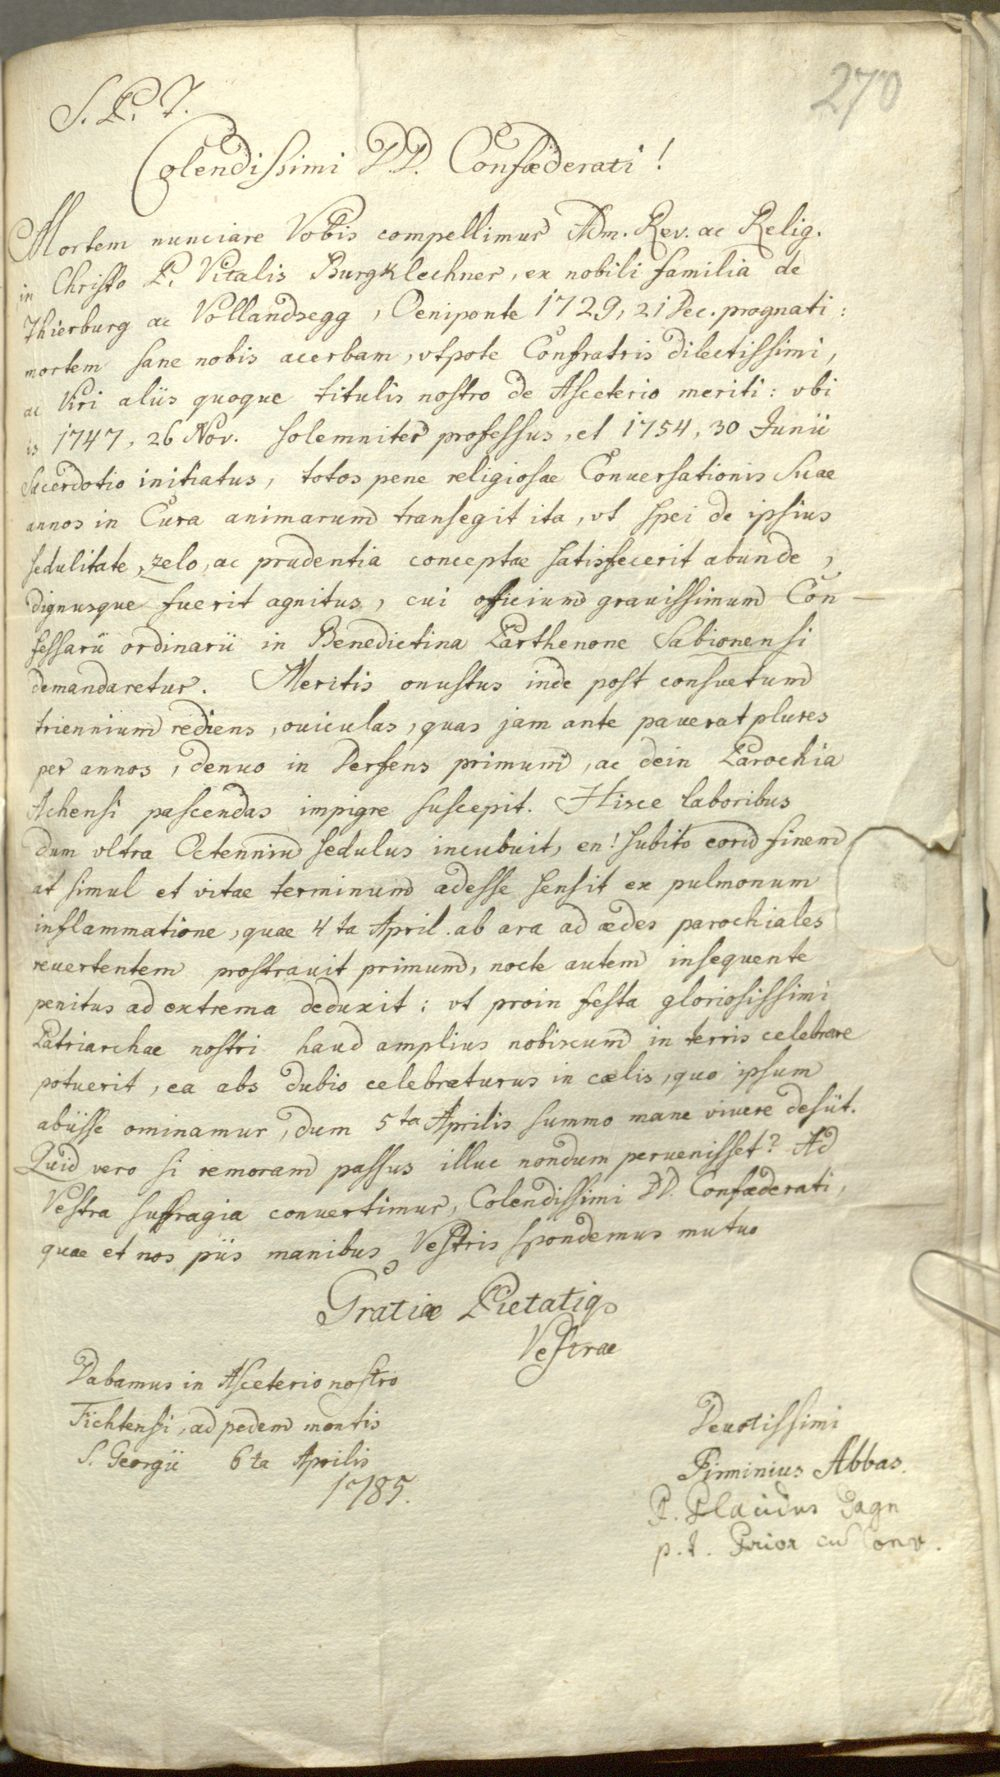 270
S. P. T.
Colendissimi DD. Confæderati!
Mortem nunciare Vobis compellimur Adm. Rev. ac Relig.
in Christo P. Vitalis Burgklechner, ex nobili familia de
Thierburg ac Vollandsegg, Oeniponte 1729, 21 Dec. prognati:
mortem sane nobis acerbam, vtpote Confratris dilectissimi,
ac Viri aliis quoque titulis nostro de Asceterio meriti: vbi
is 1747, 26 Nov. solemniter professus, et 1754, 30 Junii
Sacerdotio initiatus, totos pene religiosae Conuersationis Suae
annos in Cura animarum transegit ita, vt spei de ipsius
sedulitate, zelo, ac prudentia conceptae satisfecerit abunde,
dignusque fuerit agnitus, cui officium grauissimum Con-
fessarii ordinarii in Benedictina Parthenone Sabionensi
demandaretur. Meritis onustus inde post consuetum
triennium rediens, ouiculas, quas jam ante pauerat plures
per annos, denuo in Dersens primum, ac dein Parochia
Achensi pascendas impigre suscepit. Hisce laboribus
dum vltra Octennium sedulus incubuit, en! subito eorum finem
at simul et vitae terminum adesse sensit ex pulmonum
inflammatione, quae 4ta April. ab ara ad ædes parochiales
reuertentem prostrauit primum, nocte autem insequente
penitus ad extrema deduxit: vt proin festa gloriosissimi
Patriarchae nostri haud amplius nobiscum in terris celebrare
potuerit, ea abs dubio celebraturus in cælis, quo ipsum
abiisse ominamur, dum 5ta Aprilis summo mane viuere desiit.
Quid vero si remoram passus illuc nondum peruenisset? Ad
Vestra suffragia conuertimur, Colendissimi DD. Confæderati,
quae et nos piis manibus Vestris spondemus mutuo
Gratiæ Pietatiqs
Vestrae
Dabamus in Asceterio nostro
Fichtensi, ad pedem montis
S. Georgii 6ta Aprilis
1785.
Deuotissimi
Pirminius Abbas.
P. Placidus Dagn
p. t. Prior cu Conv.